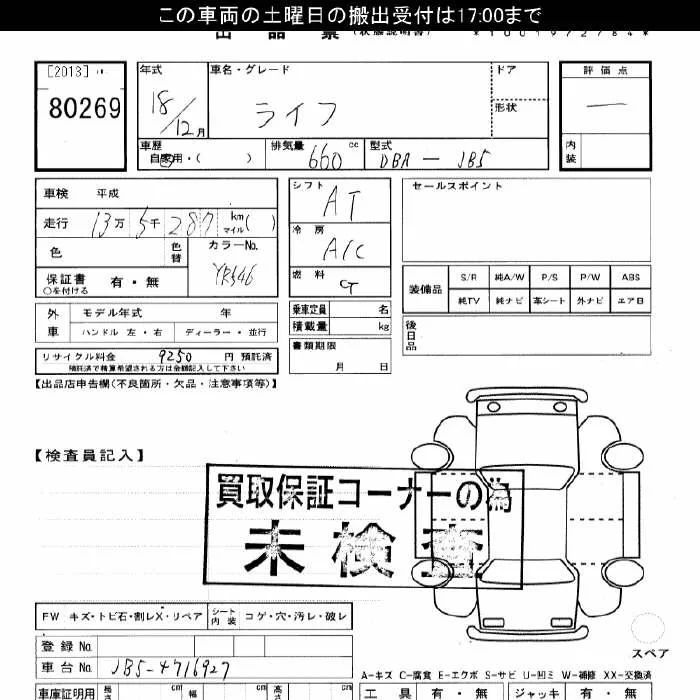 この車両の土曜日の搬出受付は17:00まで
出品票 (状態説明書) *1001972784*
[2013]
80269
年式 18/12月
車名・グレード ライフ
ドア
形状
評価点 —
内装
車歴 自家用・( )
排気量 660 cc
型式 DBA — JB5
車検 平成
走行 13万5千287 km マイル( )
色 色替
カラーNo. YR546
保証書 有・無
○を付ける
シフト AT
冷房 A/C
燃料 G
セールスポイント
装備品 S/R 純A/W P/S P/W ABS
純TV 純ナビ 革シート 外ナビ エアB
外車 モデル年式 年
ハンドル 左・右 ディーラー・並行
乗車定員 名
積載量 kg
後日品
リサイクル料金 9250 円 預託済
預託済で精算希望される方は金額記入して下さい
書類期限 月 日
【出品店申告欄(不良箇所・欠品・注意事項等)】
【検査員記入】
買取保証コーナーの為
未検査
FW キズ・トビ石・割レX・リペア シート内装 コゲ・穴・汚レ・破レ
登録No.
車台No. JB5-4716927
スペア
A-キズ C-腐食 E-エクボ S-サビ U-凹ミ W-補修 XX-交換済
車庫証明用 長さ cm 幅 cm 高さ cm
工具 有・無 ジャッキ 有・無